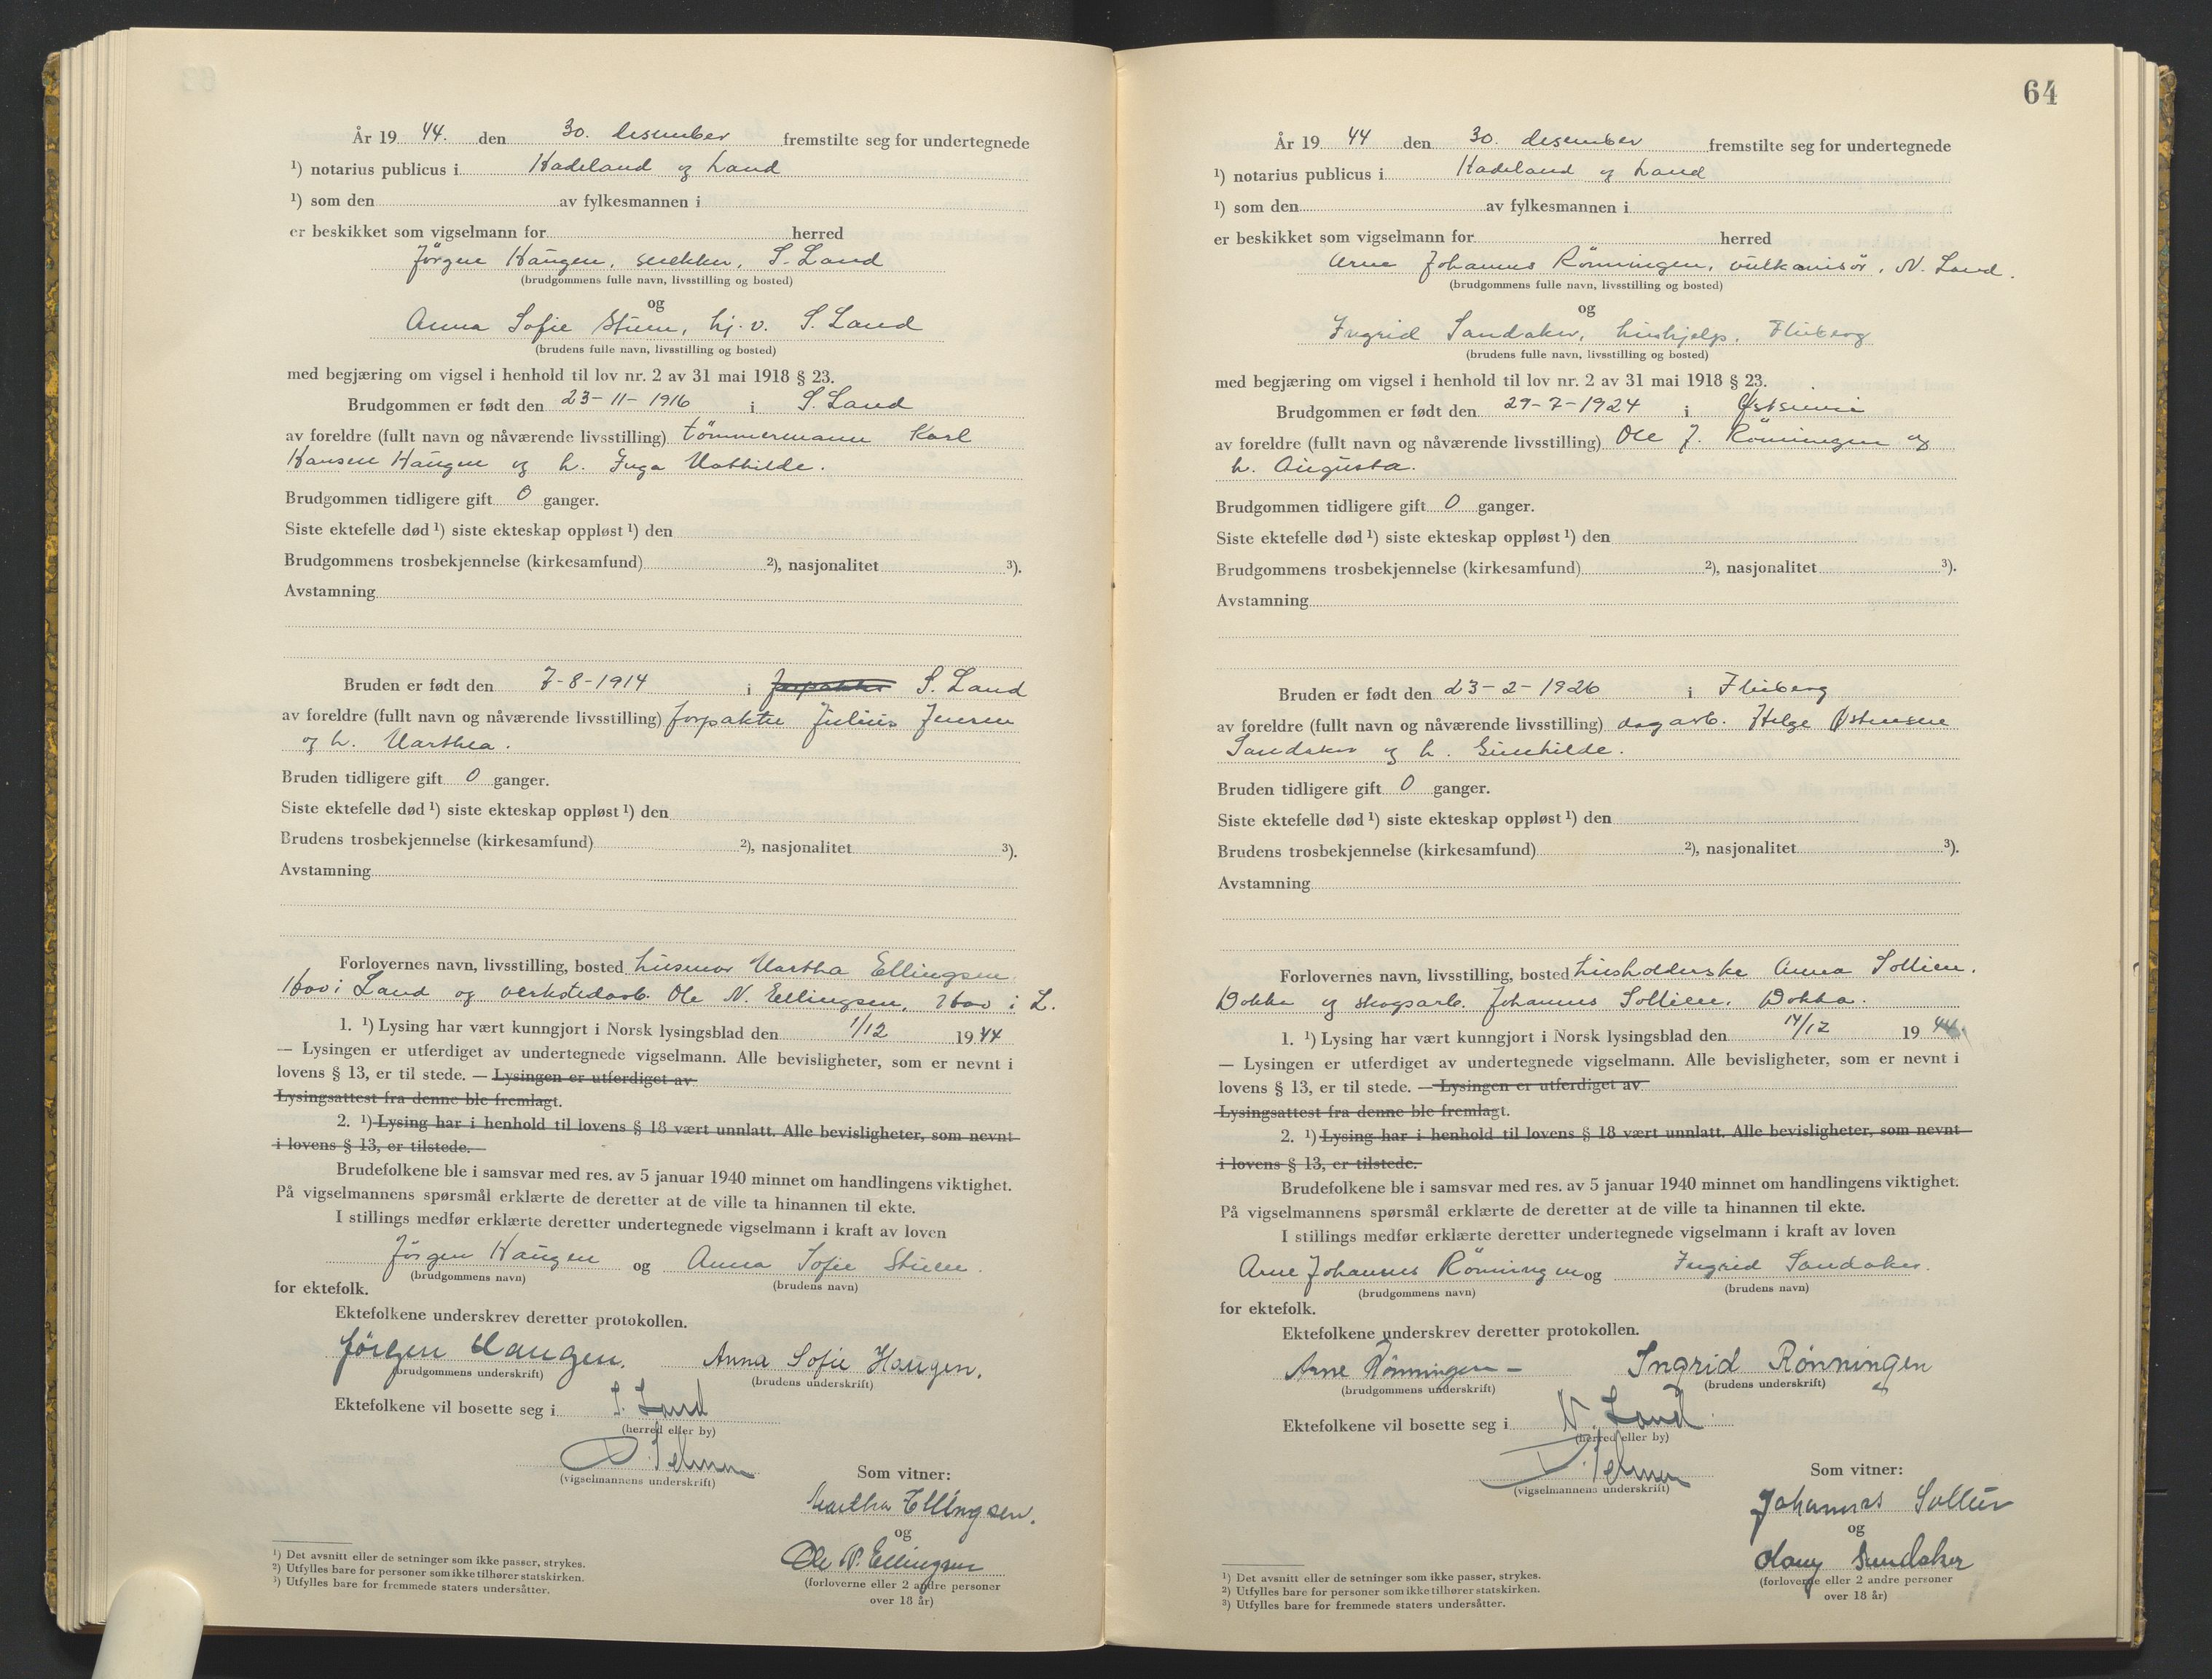 År 19 44. den 30. desember fremstilte seg for undertegnede
¹) notarius publicus i Hadeland og Land
¹) som den av fylkesmannen i
er beskikket som vigselmann for herred
Jörgen Haugen, snekker, S. Land
(brudgommens fulle navn, livsstilling og bosted)
og
Anna Sofie Stuen, hj. v. S. Land
(brudens fulle navn, livsstilling og bosted)
med begjæring om vigsel i henhold til lov nr. 2 av 31 mai 1918 § 23.
Brudgommen er født den 23-11-1916 i S. Land
av foreldre (fullt navn og nåværende livsstilling) tömmermann Karl
Hansen Haugen og h. Inga Mathilde.
Brudgommen tidligere gift 0 ganger.
Siste ektefelle død ¹) siste ekteskap oppløst ¹) den
Brudgommens trosbekjennelse (kirkesamfund) ²), nasjonalitet ³).
Avstamning
Bruden er født den 7-8-1914 i forpakter S. Land
av foreldre (fullt navn og nåværende livsstilling) forpakter Julius Jensen
og h. Marthea.
Bruden tidligere gift 0 ganger.
Siste ektefelle død ¹) siste ekteskap oppløst ¹) den
Brudens trosbekjennelse (kirkesamfund) ²), nasjonalitet ³).
Avstamning
Forlovernes navn, livsstilling, bosted husmor Martha Ellingsen
Hov i Land og verkstedarb. Ole N. Ellingsen, Hov i L.
1. ¹) Lysing har vært kunngjort i Norsk lysingsblad den 1/12 1944
— Lysingen er utferdiget av undertegnede vigselmann. Alle bevisligheter, som er nevnt i
lovens § 13, er til stede. — Lysingen er utferdiget av
Lysingsattest fra denne ble fremlagt.
2. ¹) Lysing har i henhold til lovens § 18 vært unnlatt. Alle bevisligheter, som nevnt
i lovens § 13, er tilstede. —
Brudefolkene ble i samsvar med res. av 5 januar 1940 minnet om handlingens viktighet.
På vigselmannens spørsmål erklærte de deretter at de ville ta hinannen til ekte.
I stillings medfør erklærte deretter undertegnede vigselmann i kraft av loven
Jörgen Haugen og Anna Sofie Stuen.
(brudgommens navn) (brudens navn)
for ektefolk.
Ektefolkene underskrev deretter protokollen.
Jörgen Haugen. Anna Sofie Haugen.
(brudgommens underskrift) (brudens underskrift)
Ektefolkene vil bosette seg i S. Land
(herred eller by)
(vigselmannens underskrift)
Som vitner:
Martha Ellingsen.
og
Ole N. Ellingsen
(forloverne eller 2 andre personer
over 18 år)
¹) Det avsnitt eller de setninger som ikke passer, strykes.
²) Utfylles bare for personer som ikke tilhører statskirken.
³) Utfylles bare for fremmede staters undersåtter.
64
År 19 44 den 30. desember fremstilte seg for undertegnede
¹) notarius publicus i Hadeland og Land
¹) som den av fylkesmannen i
er beskikket som vigselmann for herred
Arne Johannes Rönningen, vulkanisör, N. Land.
(brudgommens fulle navn, livsstilling og bosted)
og
Ingrid Sandaker, hushjelp, Fluberg
(brudens fulle navn, livsstilling og bosted)
med begjæring om vigsel i henhold til lov nr. 2 av 31 mai 1918 § 23.
Brudgommen er født den 29-7-1924 i Østsinni
av foreldre (fullt navn og nåværende livsstilling) Ole J. Rönningen og
h. Augusta.
Brudgommen tidligere gift 0 ganger.
Siste ektefelle død ¹) siste ekteskap oppløst ¹) den
Brudgommens trosbekjennelse (kirkesamfund) ²), nasjonalitet ³).
Avstamning
Bruden er født den 23-2-1926 i Fluberg
av foreldre (fullt navn og nåværende livsstilling) dagarb. Helge Østensen
Sandaker og h. Gunhilde.
Bruden tidligere gift 0 ganger.
Siste ektefelle død ¹) siste ekteskap oppløst ¹) den
Brudens trosbekjennelse (kirkesamfund) ²), nasjonalitet ³).
Avstamning
Forlovernes navn, livsstilling, bosted husholderske Anna Sollien.
Dokka og skogsarb. Johannes Sollien. Dokka.
1. ¹) Lysing har vært kunngjort i Norsk lysingsblad den 14/12 19 44.
— Lysingen er utferdiget av undertegnede vigselmann. Alle bevisligheter, som er nevnt i
lovens § 13, er til stede. — Lysingen er utferdiget av
Lysingsattest fra denne ble fremlagt.
2. ¹) Lysing har i henhold til lovens § 18 vært unnlatt. Alle bevisligheter, som nevnt
i lovens § 13, er tilstede.
Brudefolkene ble i samsvar med res. av 5 januar 1940 minnet om handlingens viktighet.
På vigselmannens spørsmål erklærte de deretter at de ville ta hinannen til ekte.
I stillings medfør erklærte deretter undertegnede vigselmann i kraft av loven
Arne Johannes Rönningen og Ingrid Sandaker.
(brudgommens navn) (brudens navn)
for ektefolk.
Ektefolkene underskrev deretter protokollen.
Arne Rönningen — Ingrid Rønningen
(brudgommens underskrift) (brudens underskrift)
Ektefolkene vil bosette seg i N. Land.
(herred eller by)
(vigselmannens underskrift)
Som vitner:
Johannes Sollien
og
Sandaker
(forloverne eller 2 andre personer
over 18 år)
¹) Det avsnitt eller de setninger som ikke passer, strykes.
²) Utfylles bare for personer som ikke tilhører statskirken.
³) Utfylles bare for fremmede staters undersåtter.